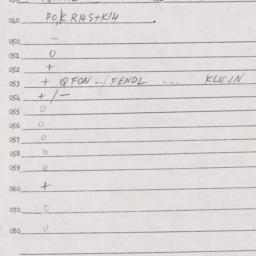 040 PO,K R14S+K14 .
050 —
051 0
052 +
053 + QFON ../ FENDL ... KLEJN
054 + / —
055 0
056 0
057 0
058 0
059 0
060 +
070 0
080 0